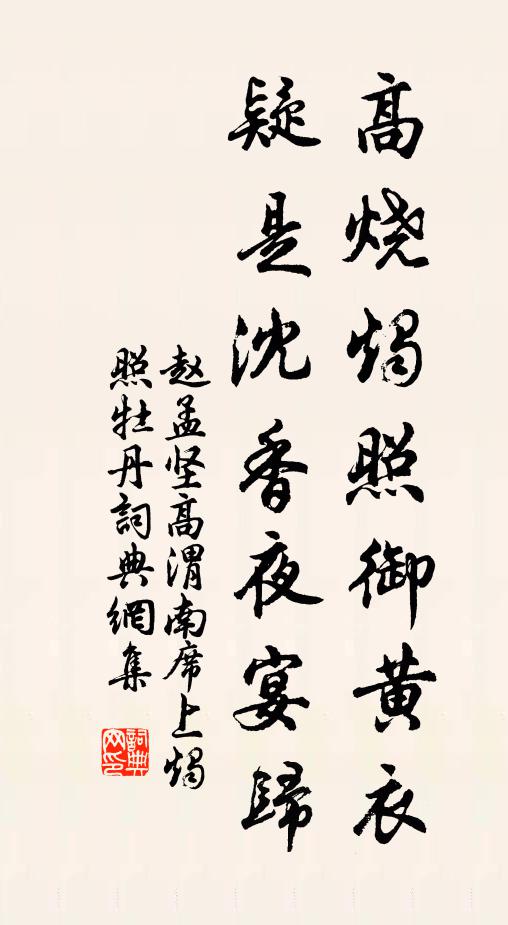 高烧燭照御黄衣
疑是沈香夜宴歸
赵孟坚高渭南席上燭
照牡丹詞典網集
詞典网印